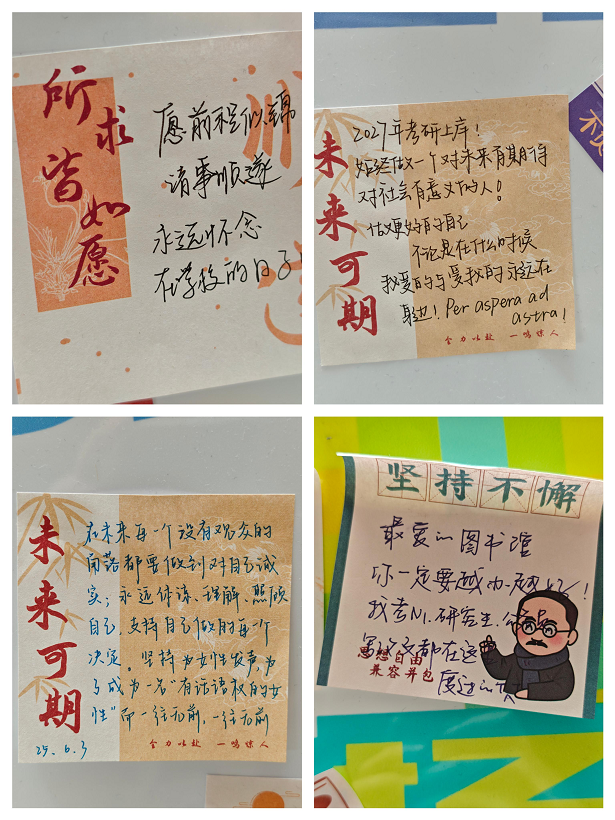 所求皆如愿
愿前程似锦
诸事顺遂
永远怀念
在学校的日子
未来可期
2027年考研上岸！
始终做一个对未来有期待
对社会有意义的人！
做更好的自己
不论是在什么时候
我爱的与爱我的永远在
身边！Per aspera ad
astra！
全力以赴 一鸣惊人
未来可期
在未来每一个没有观众的
角落都要做到对自己诚
实；永远体谅、理解、照顾
自己，支持自己做的每一个
决定。坚持为女性发声，为
了成为一名“有话语权的女
性”而一往无前，一往无前
25.6.3
全力以赴 一鸣惊人
坚持不懈
最爱的图书馆
你一定要越办越好！
我考N1.研究生.
论文都在这
度过的
思想自由
兼容并包